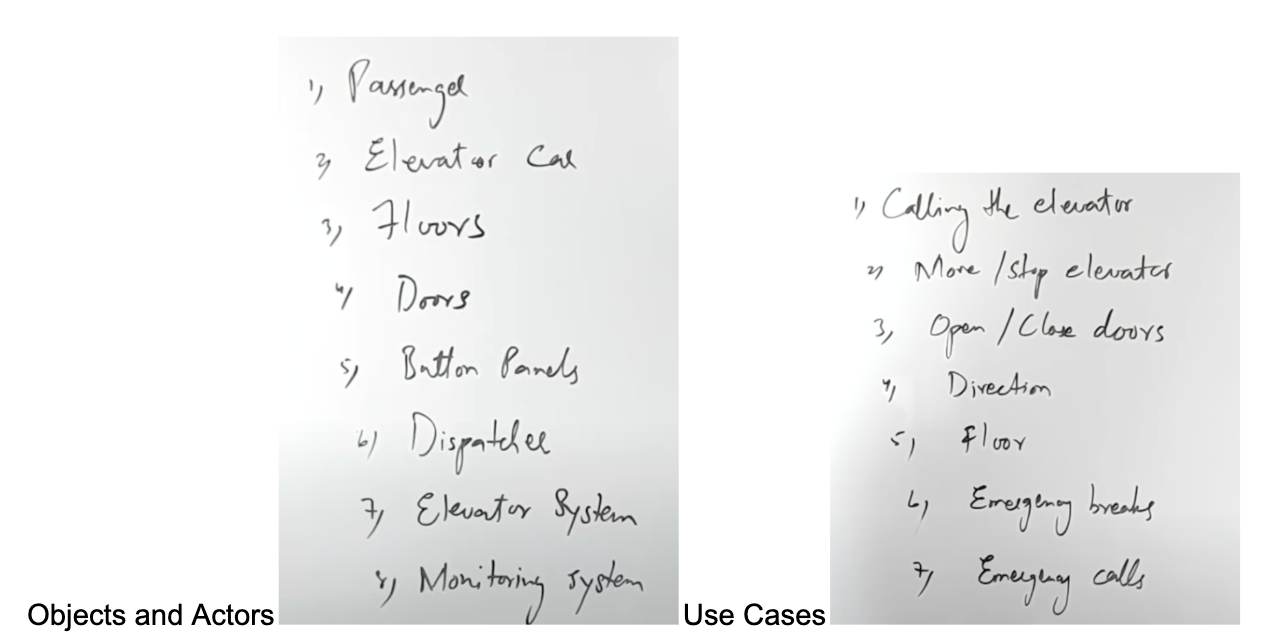 Objects and Actors
1) Passenger
2) Elevator Car
3) Floors
4) Doors
5) Button Panels
6) Dispatcher
7) Elevator System
8) Monitoring system
Use Cases
1) Calling the elevator
2) Move / Stop elevator
3) Open / Close doors
4) Direction
5) Floor
6) Emergency breaks
7) Emergency calls